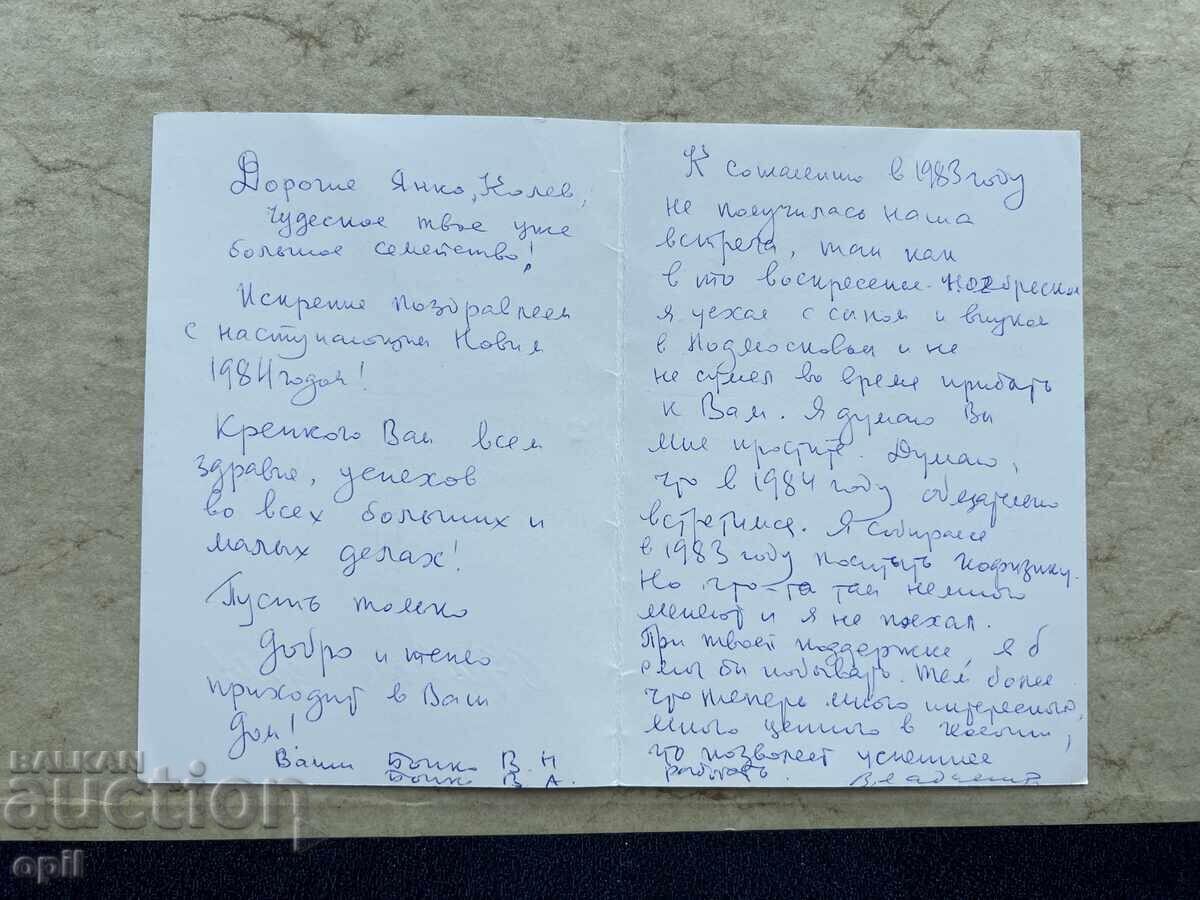 Дорогие Янко, Колев,
Чудесное твое уже
большое семейство!
Искренне поздравляем
с наступающим Новым
1984 годом!
Крепкого Вам всем
здравья, успехов
во всех больших и
малых делах!
Пусть только
добро и тепло
приходит в Ваш
дом!
Ваши Бойко В. Н
Бойко В А.
К сожалению в 1983 году
не получилась наша
встреча, так как
в то воскресенье
я уехал с сыном и внуком
в Подмосковье и не
не сумел во время прибыть
к Вам. Я думаю Вы
мне простите. Думаю,
что в 1984 году обязательно
встретимся. Я собирался
в 1983 году посетить
Но что-то там немного
и я не поехал.
При твоей поддержке, я б
смог бы побывать. Тем более
что теперь много интересного,
много ценного в
что позволяет успешнее
работать. Владимир
BALKAN
auction
opil